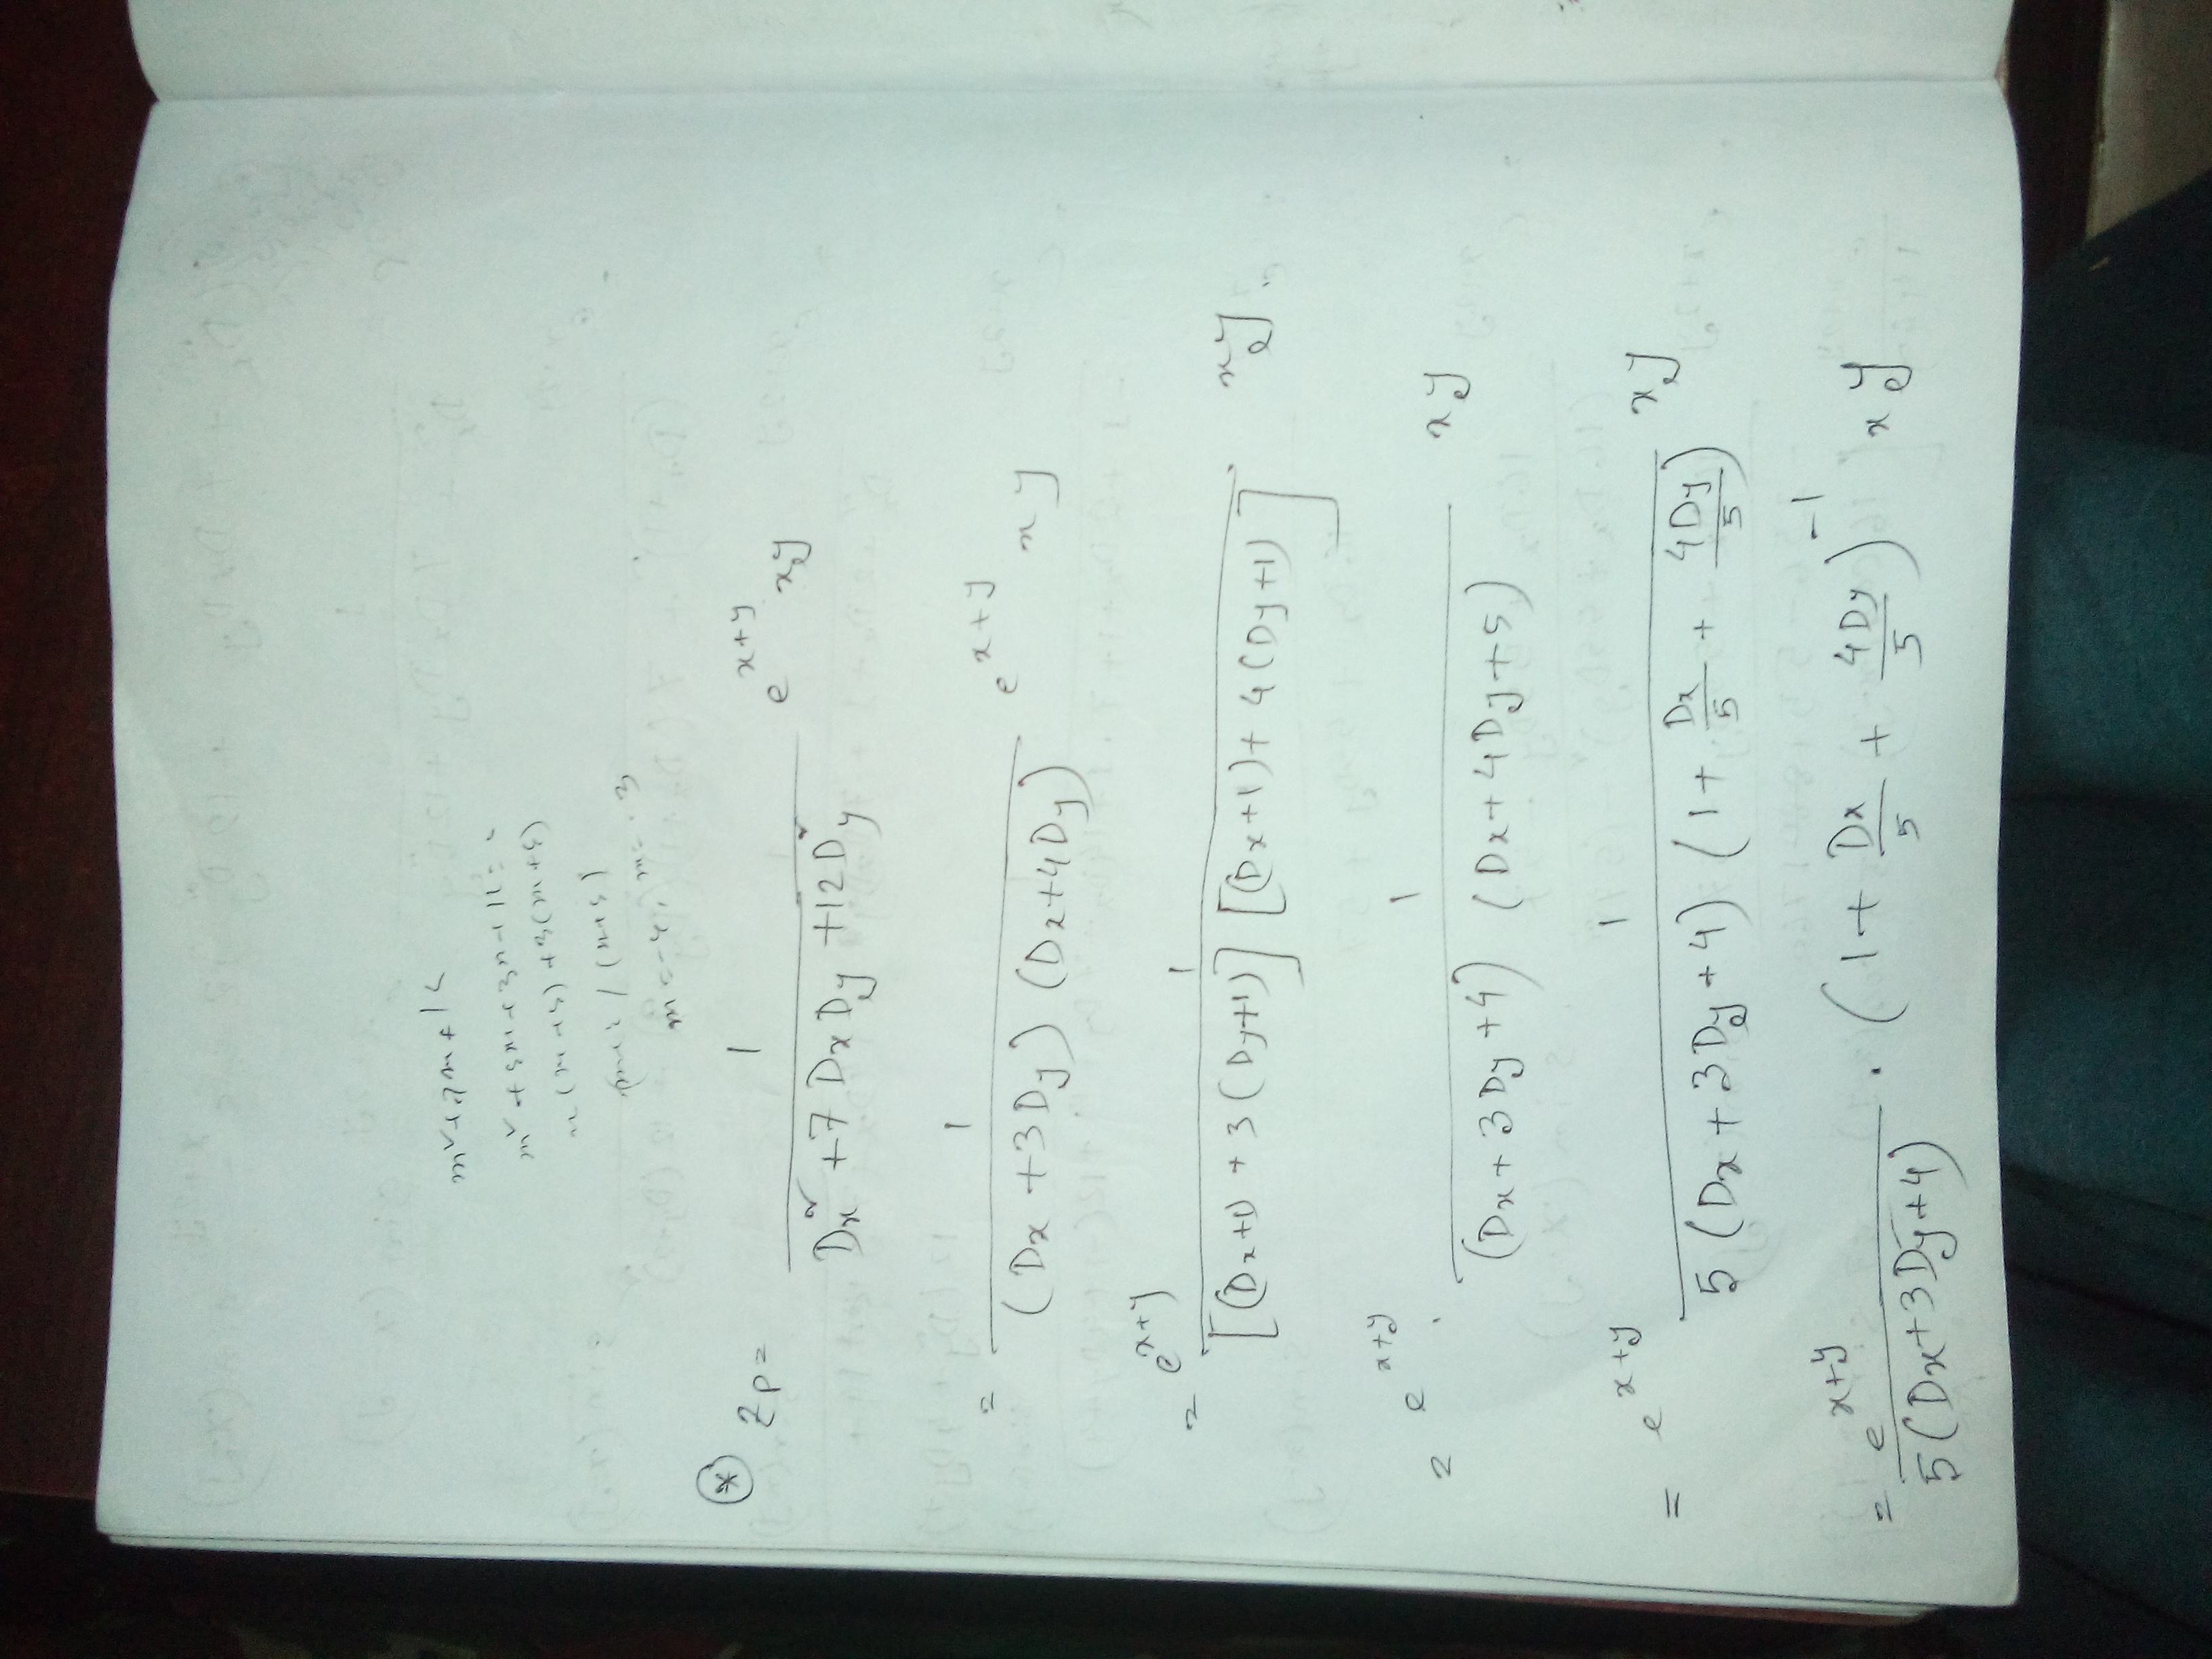 m² + 7m + 12
m² + 4m + 3m + 12 =
m (m + 4) + 3(m + 4)
(m + 4)
m = -4, m = -3
⊛ Zp = 1 / (Dx² + 7 Dx Dy + 12 Dy²) e^(x+y) xy
= 1 / ((Dx + 3Dy) (Dx + 4Dy)) e^(x+y) xy
= e^(x+y) 1 / ([(Dx+1) + 3(Dy+1)] [(Dx+1) + 4(Dy+1)]) xy
= e^(x+y) . 1 / ((Dx + 3Dy + 4) (Dx + 4Dy + 5)) xy
= e^(x+y) 1 / (5 (Dx + 3Dy + 4) (1 + Dx/5 + 4Dy/5)) xy
= e^(x+y) / (5(Dx + 3Dy + 4)) . (1 + Dx/5 + 4Dy/5)^-1 xy